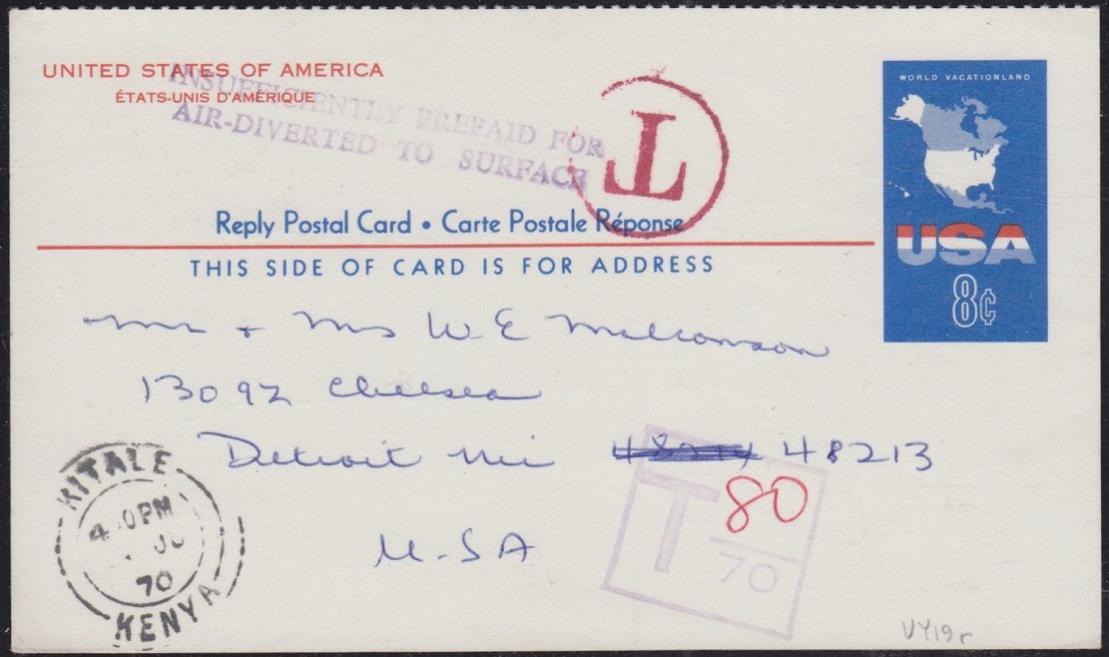 UNITED STATES OF AMERICA
ÉTATS-UNIS D'AMÉRIQUE
INSUFFICIENTLY PREPAID FOR
AIR-DIVERTED TO SURFACE
T
WORLD VACATIONLAND
USA
8¢
Reply Postal Card • Carte Postale Réponse
THIS SIDE OF CARD IS FOR ADDRESS
Mr + Mrs W E
13092 Chelsea
Detroit Mi 48213
U.S.A
KITALE
PM
70
KENYA
T 80
70
UY19r